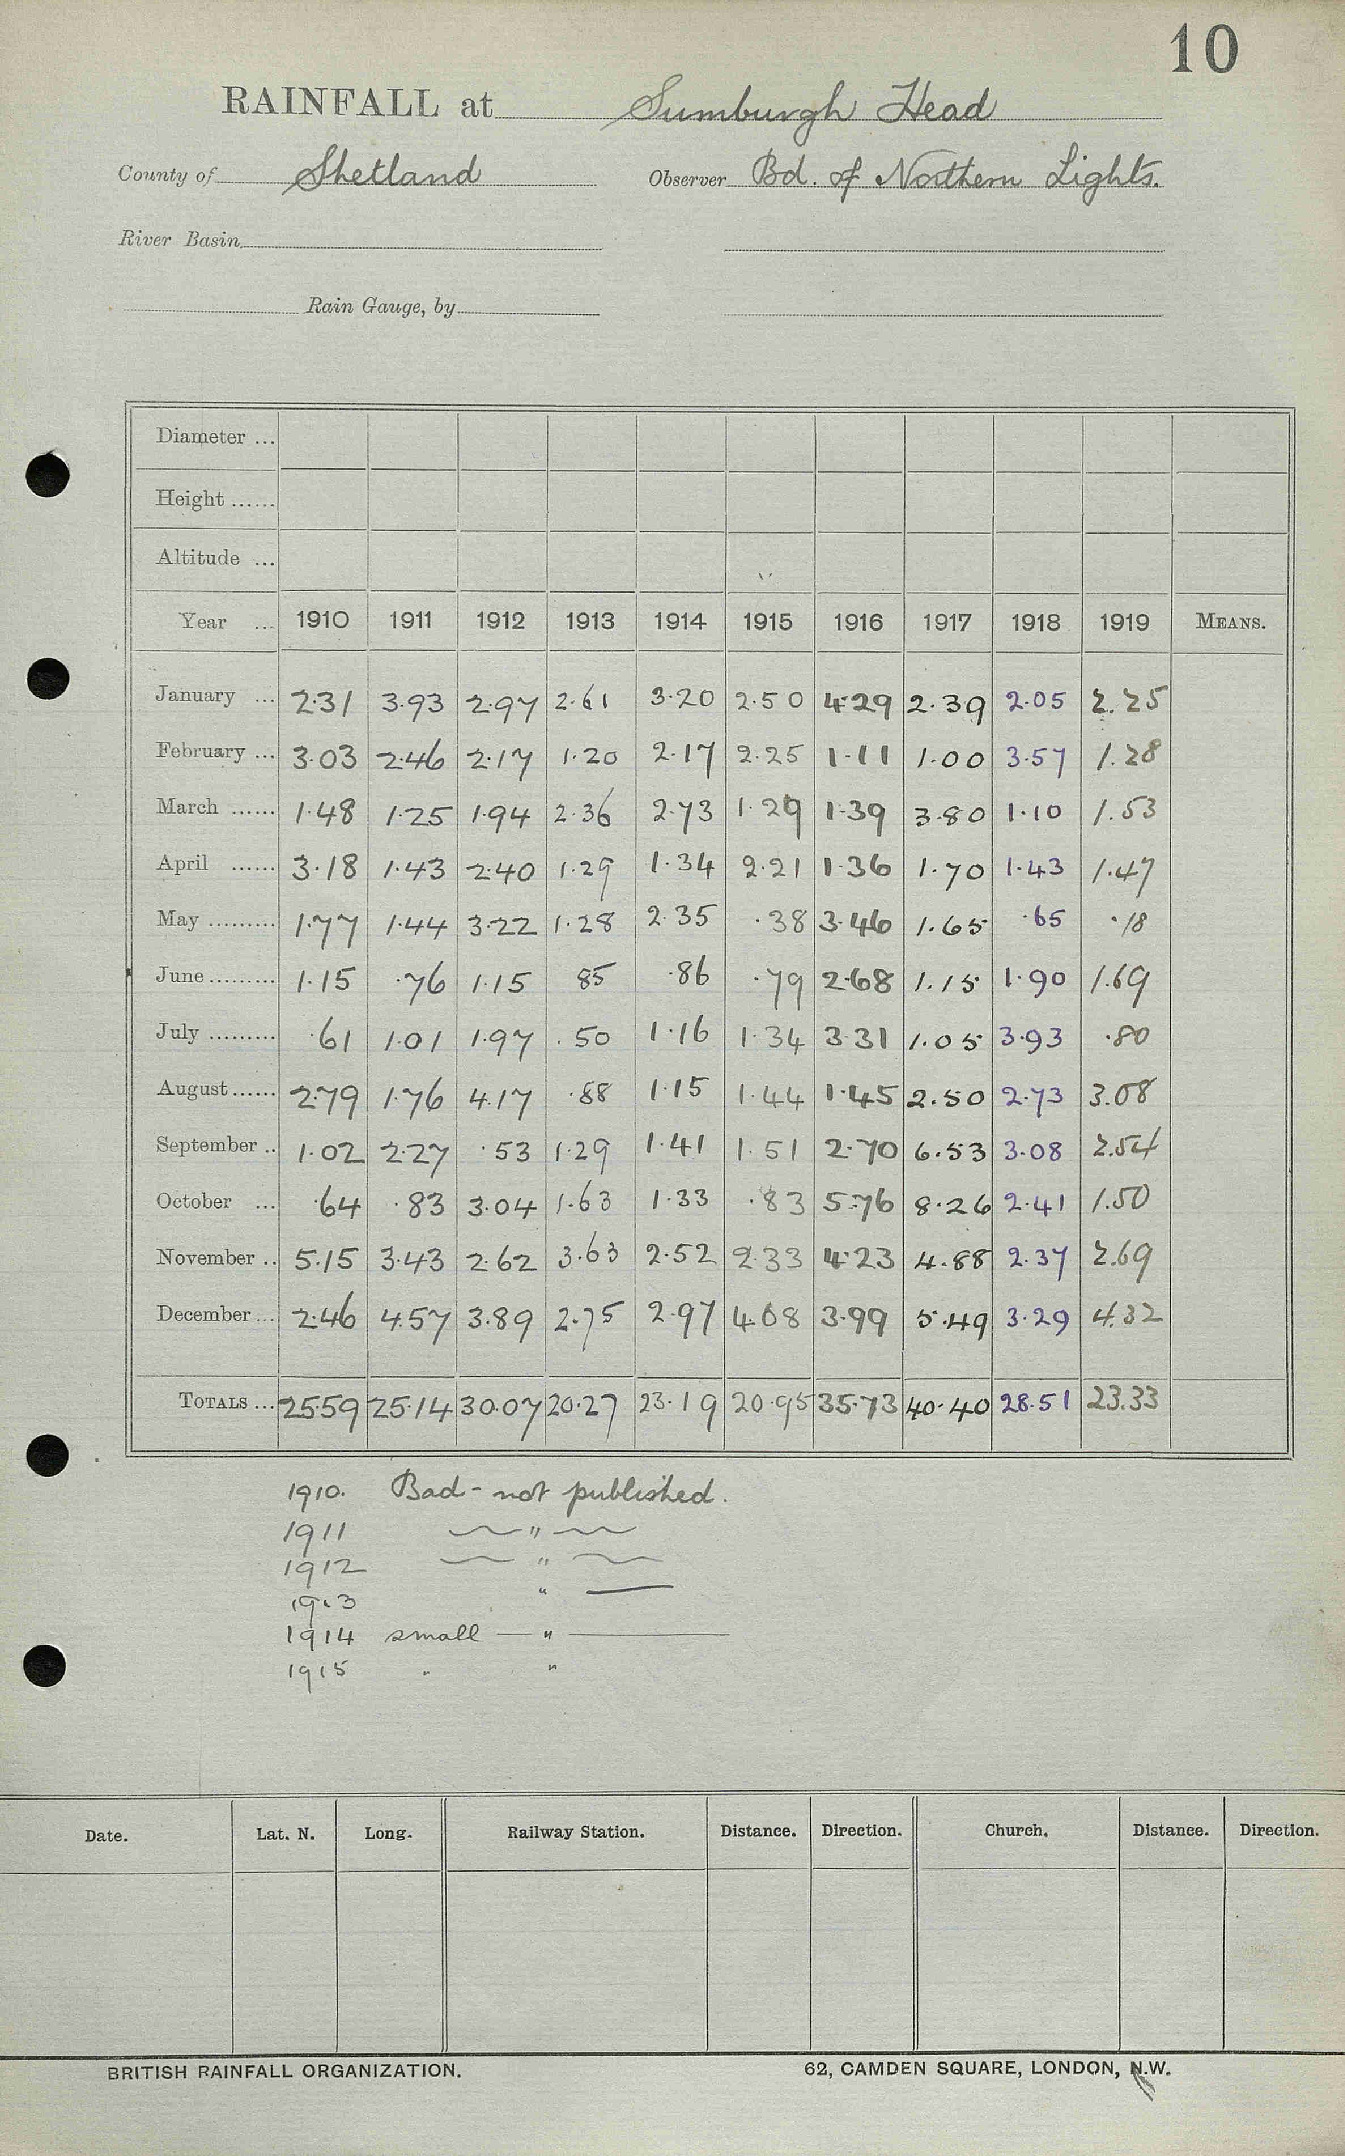 10
RAINFALL at Sumburgh Head
County of Shetland Observer Bd. of Northern Lights.
River Basin
Rain Gauge, by
Diameter ...
Height ......
Altitude ...
Year ... 1910 1911 1912 1913 1914 1915 1916 1917 1918 1919 MEANS.
January ... 2.31 3.93 2.97 2.61 3.20 2.50 4.29 2.39 2.05 2.25
February ... 3.03 2.46 2.17 1.20 2.17 2.25 1.11 1.00 3.57 1.28
March ...... 1.48 1.25 1.94 2.36 2.73 1.29 1.39 3.80 1.10 1.53
April ...... 3.18 1.43 2.40 1.29 1.34 2.21 1.36 1.70 1.43 1.47
May ......... 1.77 1.44 3.22 1.28 2.35 .38 3.46 1.65 .65 .18
June ......... 1.15 .76 1.15 85 .86 .79 2.68 1.15 1.90 1.69
July ......... .61 1.01 1.97 .50 1.16 1.34 3.31 1.05 3.93 .80
August ...... 2.79 1.76 4.17 .88 1.15 1.44 1.45 2.50 2.73 3.08
September .. 1.02 2.27 .53 1.29 1.41 1.51 2.70 6.53 3.08 2.54
October ... .64 .83 3.04 1.63 1.33 .83 5.76 8.26 2.41 1.50
November .. 5.15 3.43 2.62 3.63 2.52 2.33 4.23 4.88 2.37 2.69
December ... 2.46 4.57 3.89 2.75 2.97 4.08 3.99 5.49 3.29 4.32
TOTALS ... 25.59 25.14 30.07 20.27 23.19 20.95 35.73 40.40 28.51 23.33
1910. Bad - not published.
1911 "
1912 "
1913 "
1914 small — " —
1915 " "
Date. Lat. N. Long. Railway Station. Distance. Direction. Church. Distance. Direction.
BRITISH RAINFALL ORGANIZATION. 62, CAMDEN SQUARE, LONDON, N.W.